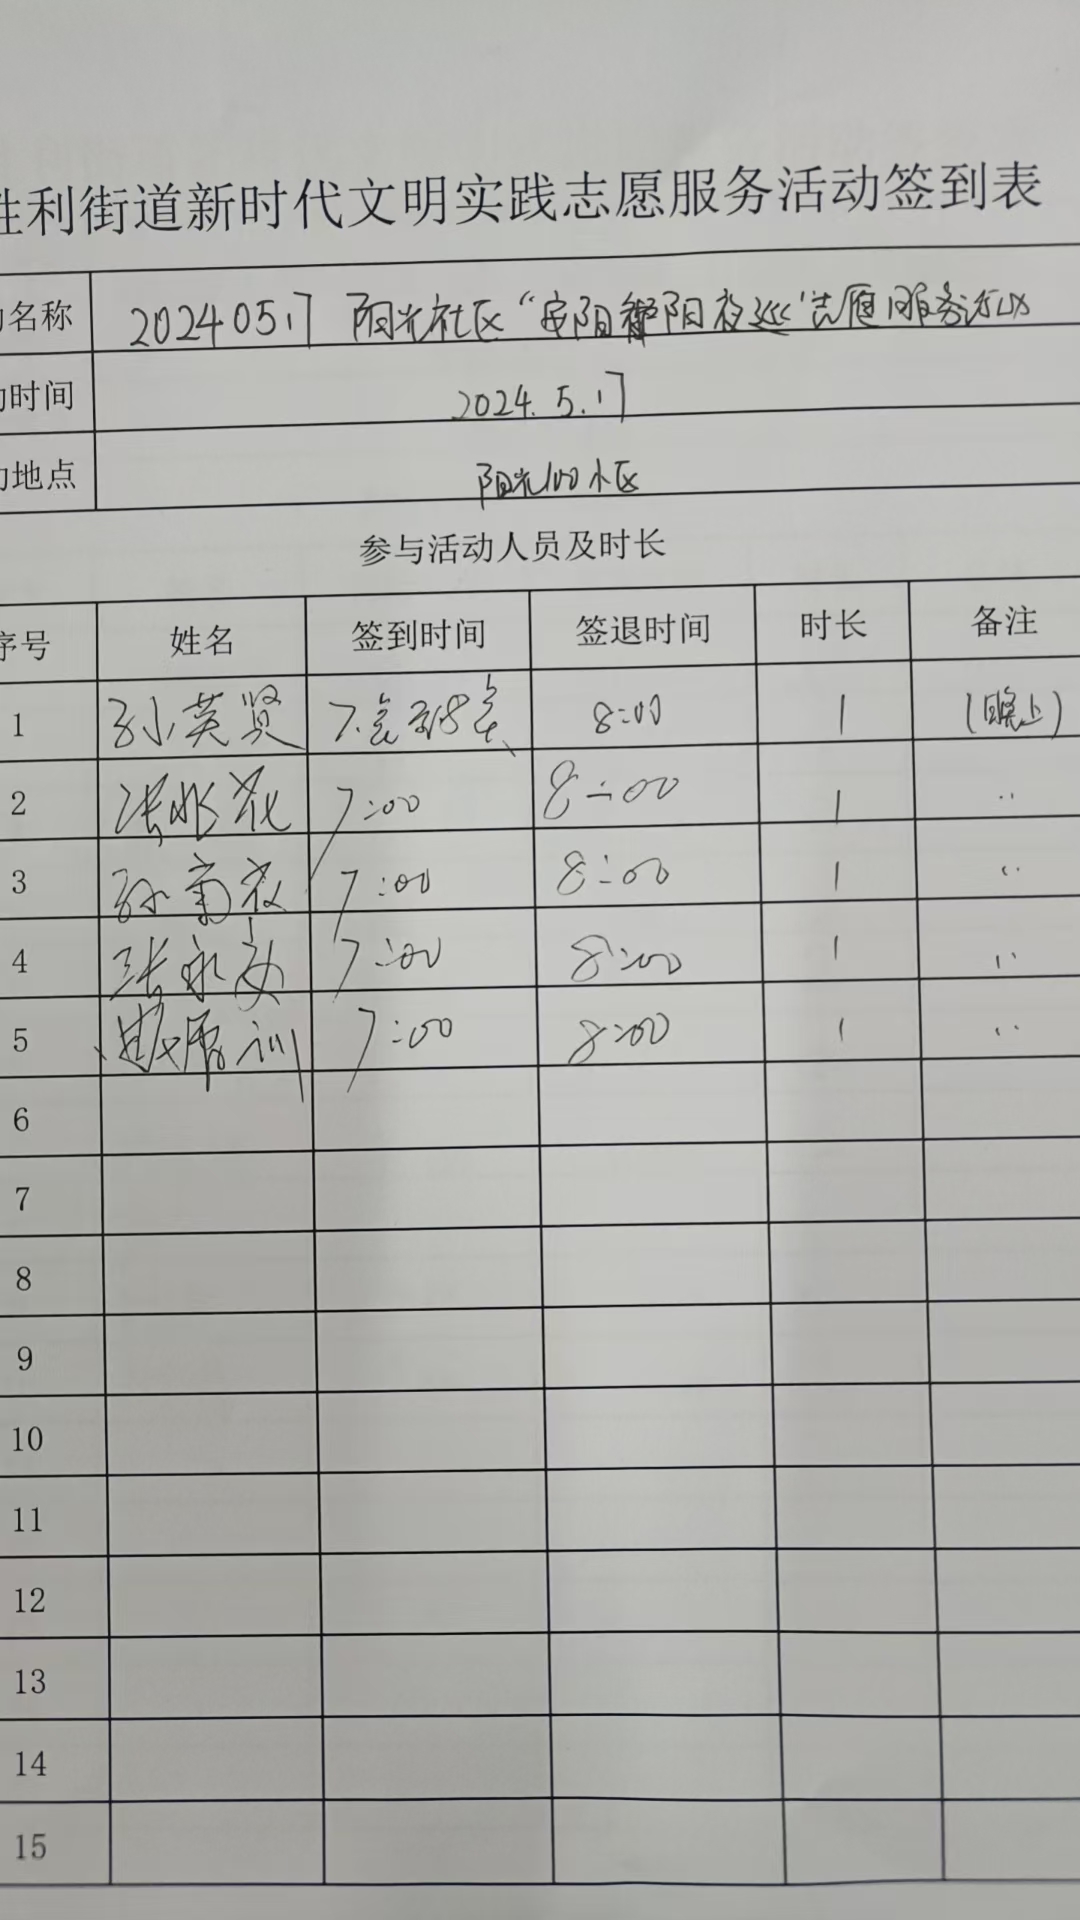 胜利街道新时代文明实践志愿服务活动签到表
动名称 20240517 阳光社区“安阳 阳夜巡”志愿服务活动
动时间 2024.5.17
动地点 阳光100小区
参与活动人员及时长
序号 姓名 签到时间 签退时间 时长 备注
1 孙英贤 7点到8点 8:00 1 (晚上)
2 张 花 7:00 8:00 1 ··
3 孙菊 7:00 8:00 1 ··
4 张永 7:00 8:00 1 ··
5 训 7:00 8:00 1 ··
6
7
8
9
10
11
12
13
14
15